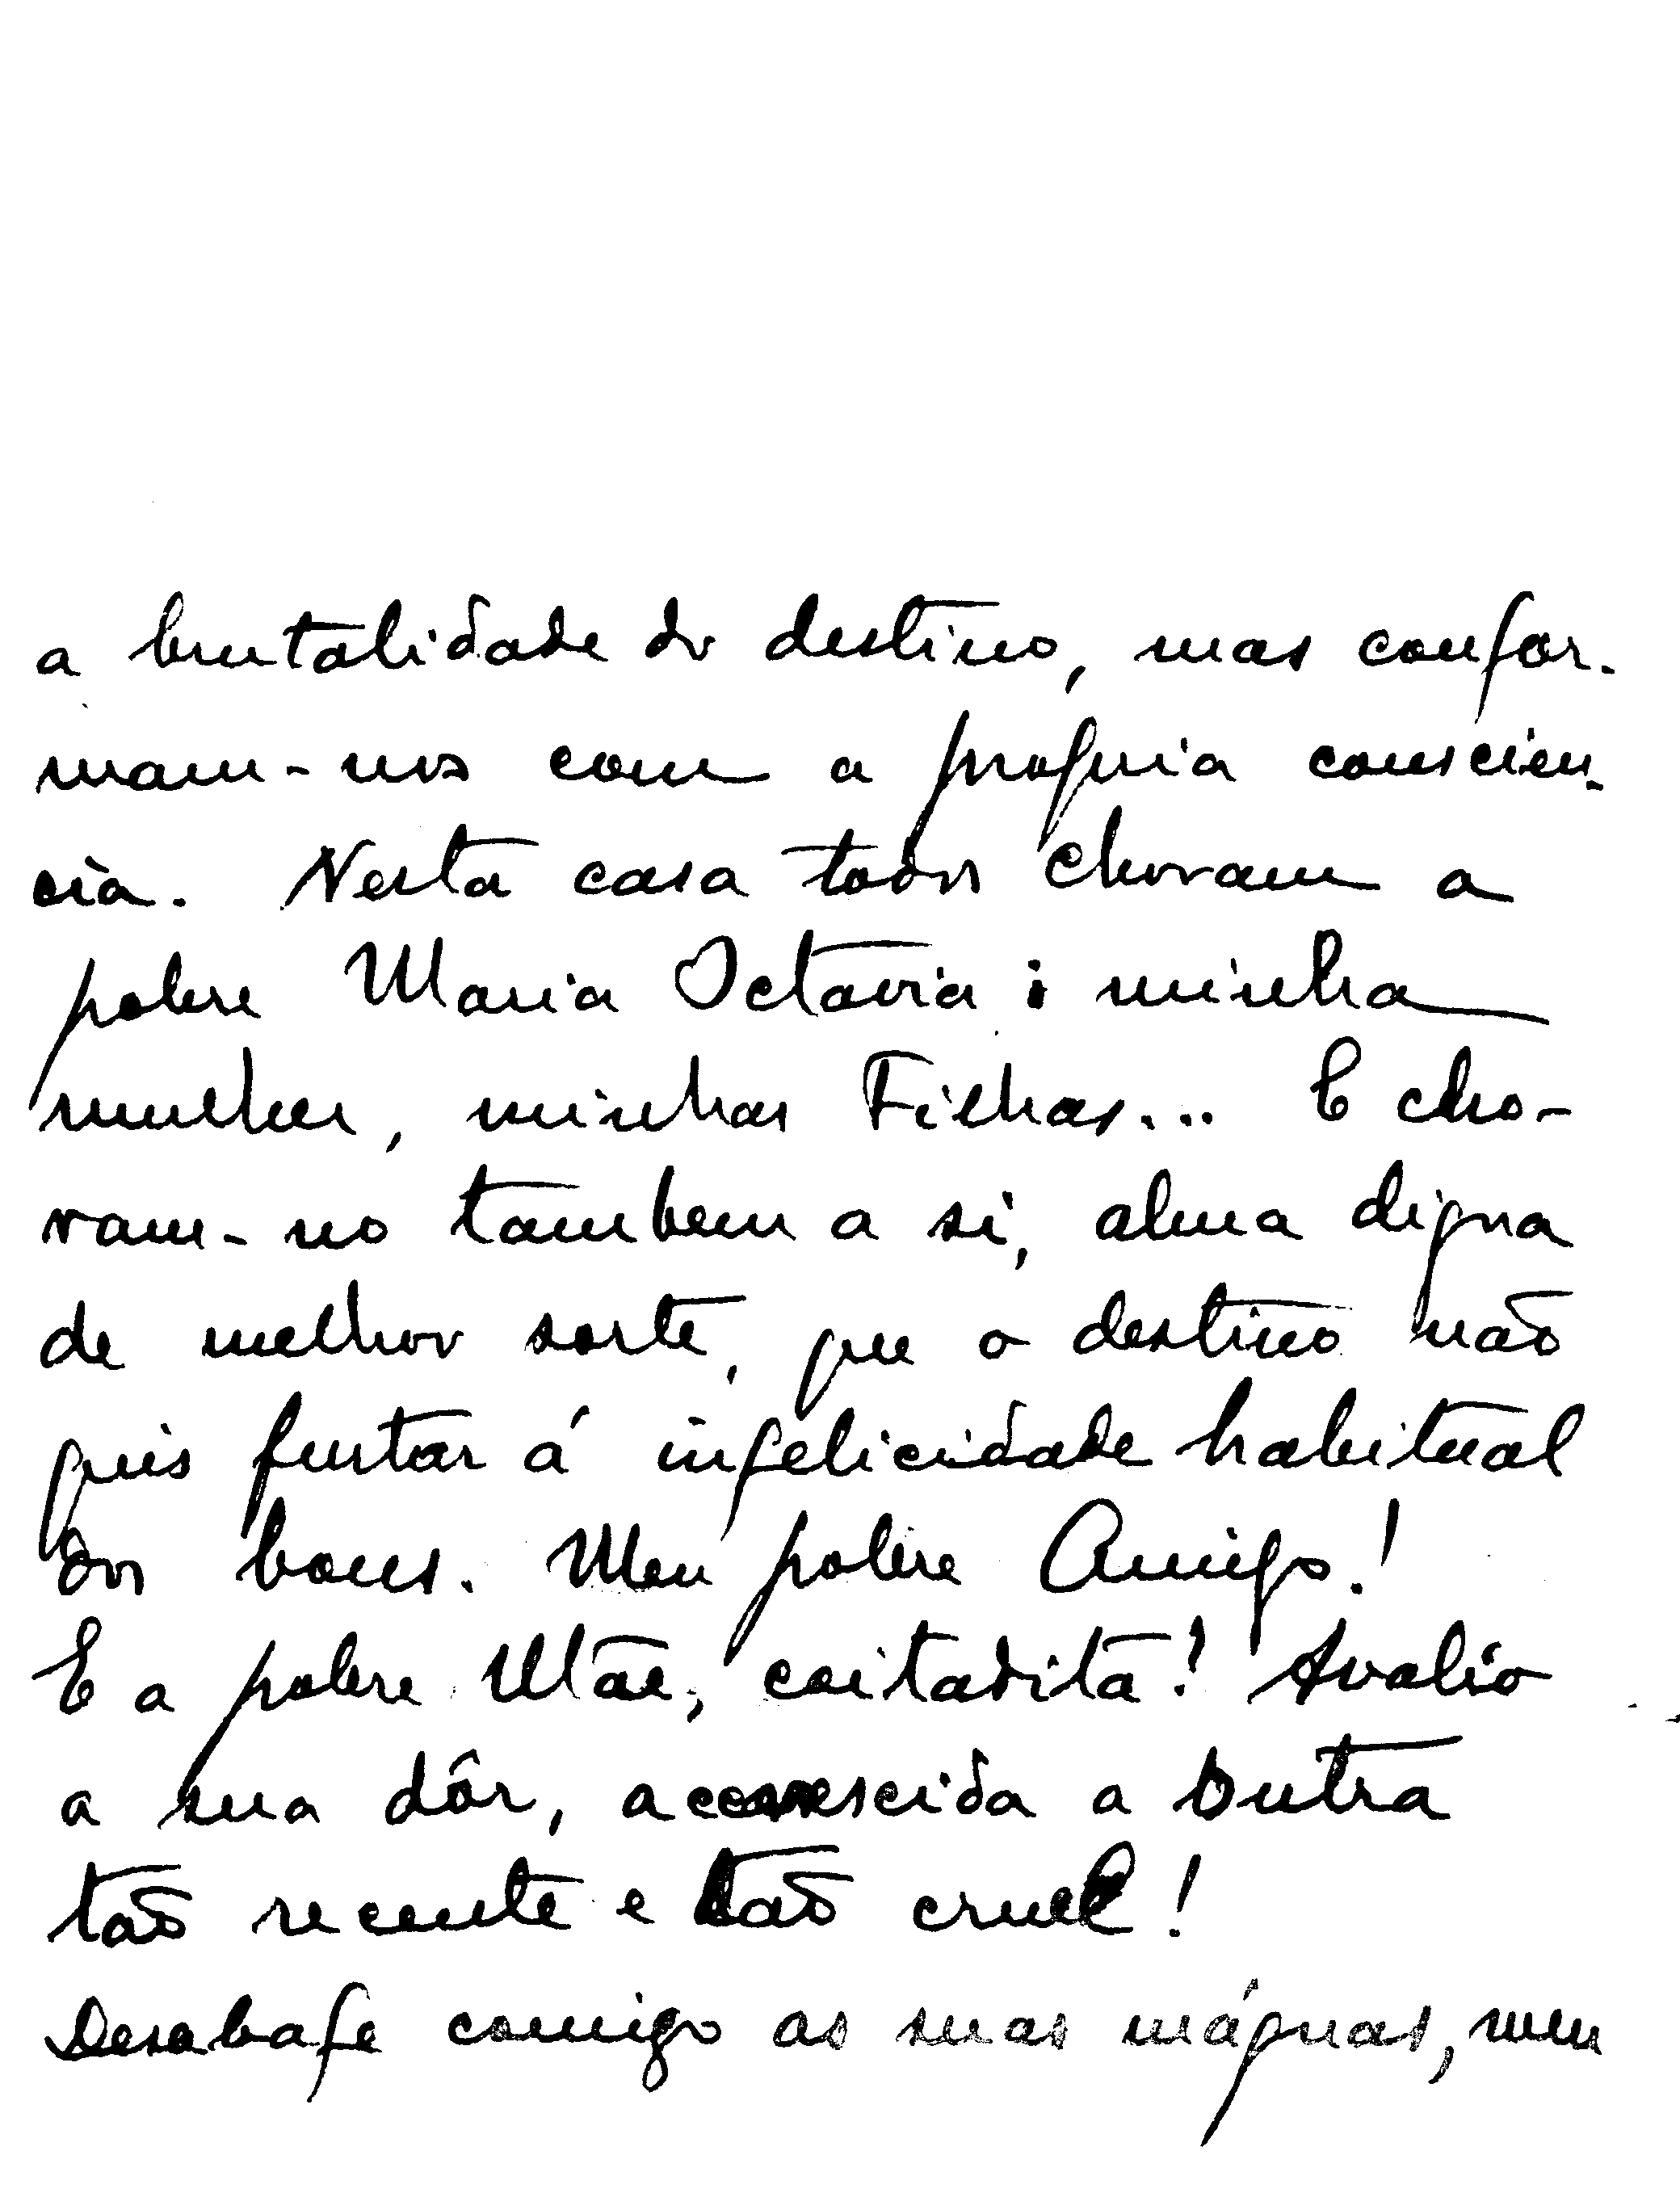 a brutalidade do destino, mas confor-
mam-nos com a propria conscien-
cia. Nesta casa todos choram a
pobre Maria Octavia: minha
mulher, minhas Filhas... E cho-
ram-no tambem a si, alma digna
de melhor sorte, que o destino não
quis furtar á infelicidade habitual
dos bons. Meu pobre Amigo!
E a pobre Mãe, coitadita! Avalio
a sua dôr, accrescida a outra
tão recente e tão cruel!
Desabafe comigo as suas máguas, meu